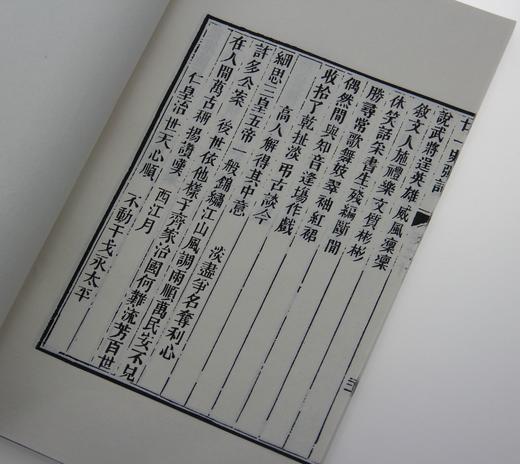 廿一史彈詞
說武將逞英雄威風凜凜
敘文人施禮樂文質彬彬
休笑話書生殘編斷間
勝尋常歌舞妓翠袖紅裙
偶然間與知音逢場作戲
收拾了乾扯淡弔古談今
高人解得其中意 淡盡爭名奪利心
細思三皇五帝一般錦繡江山風調雨順萬民安不見
許多公案 後世依他樣子齊家治國何難流芳百世
在人間萬古稱揚讚嘆 西江月
仁皇治世天心順 不動干戈永太平
三